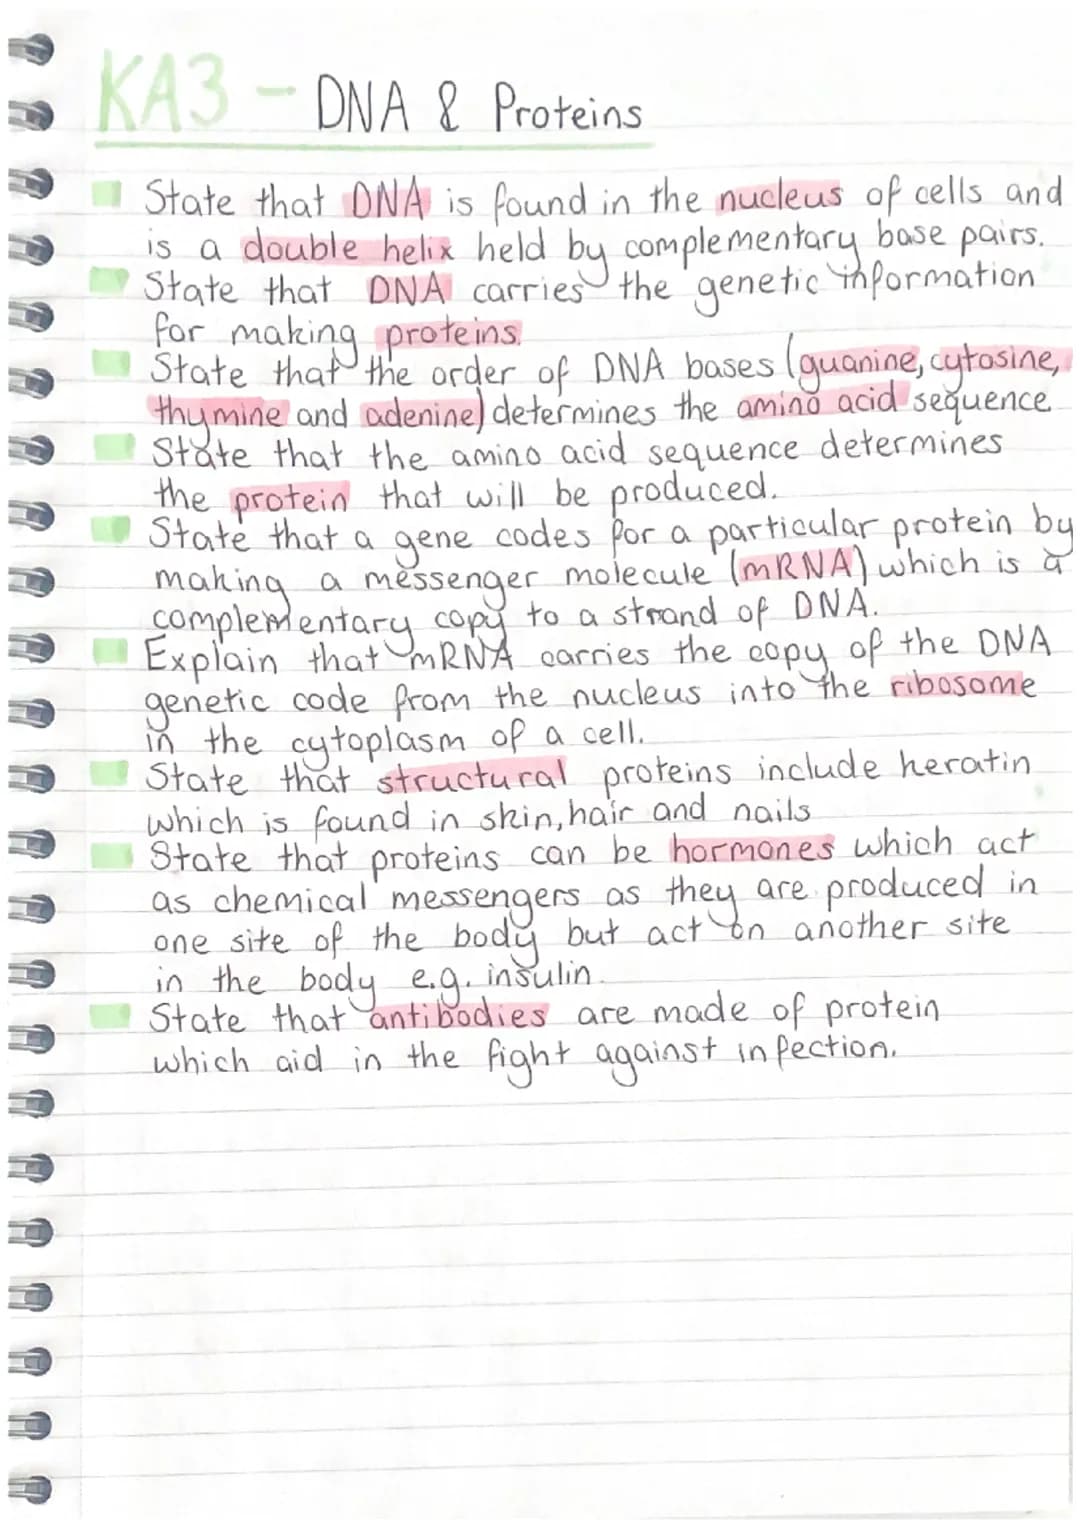 KA3 - DNA & Proteins
State that DNA is found in the nucleus of cells and
is a double helix held by complementary base pairs.
State that DNA carries the genetic information
for making proteins.
State that the order of DNA bases (guanine, cytosine,
thymine and adenine) determines the amino acid sequence
State that the amino acid sequence determines
the protein that will be produced.
State that a gene codes for a particular protein by
making a messenger molecule (mRNA) which is a
complementary copy to a strand of DNA.
Explain that mRNA carries the copy of the DNA
genetic code from the nucleus into the ribosome
in the cytoplasm of a cell.
State that structural proteins include keratin
which is found in skin, hair and nails
State that proteins can be hormones which act
as chemical messengers as they are produced in
one site of the body but act on another site
in the body e.g. insulin.
State that antibodies are made of protein
which aid in the fight against infection.